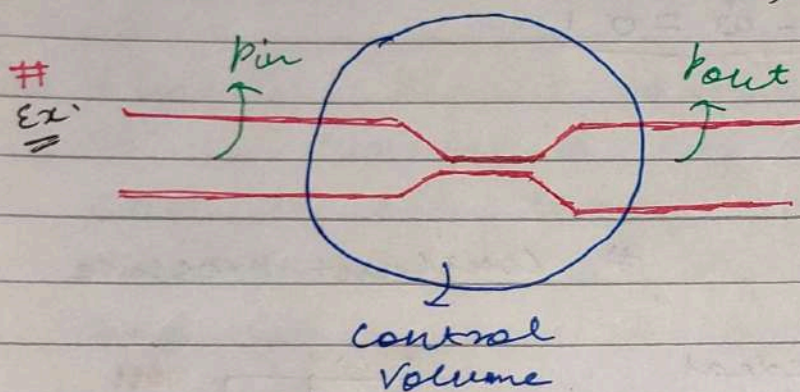 #
Ex·
Pin
Pout
Control
Volume